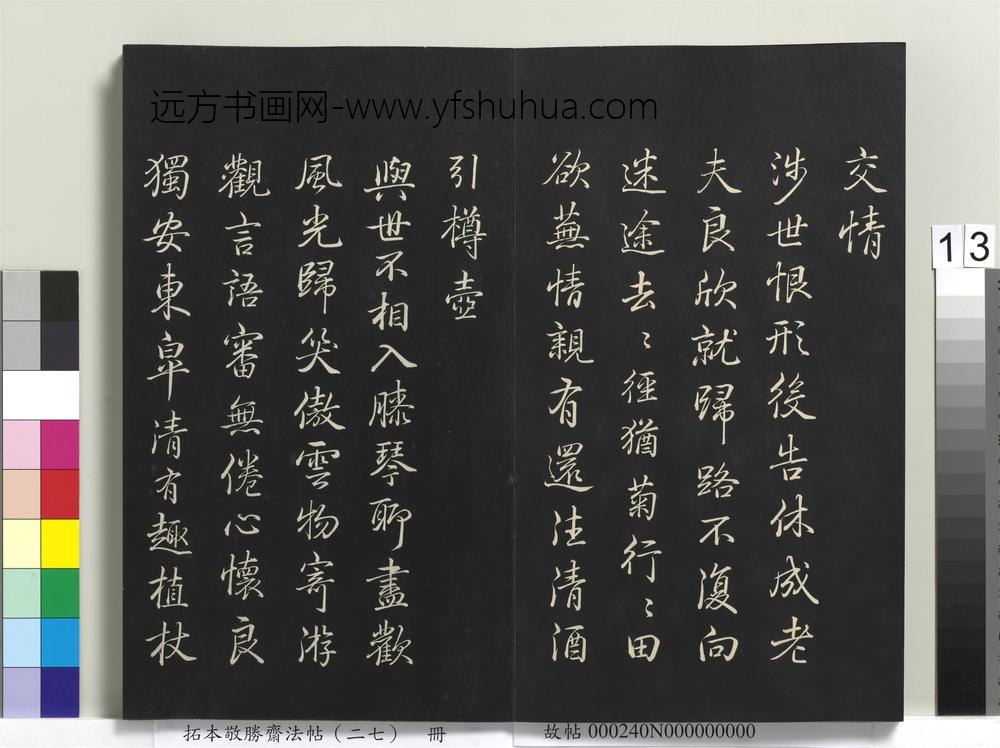 远方书画网-www.yfshuhua.com
交情
涉世恨形後告休成老
夫良欣就歸路不復向
迷途去〻徑猶菊行〻田
欲蕪情親有還往清酒
引樽壺
與世不相入膝琴聊盡歡
風光歸笑傲雲物寄游
觀言語審無倦心懷良
獨安東皐清有趣植杖
13
拓本敬勝齋法帖（二七） 冊
故帖 000240N000000000